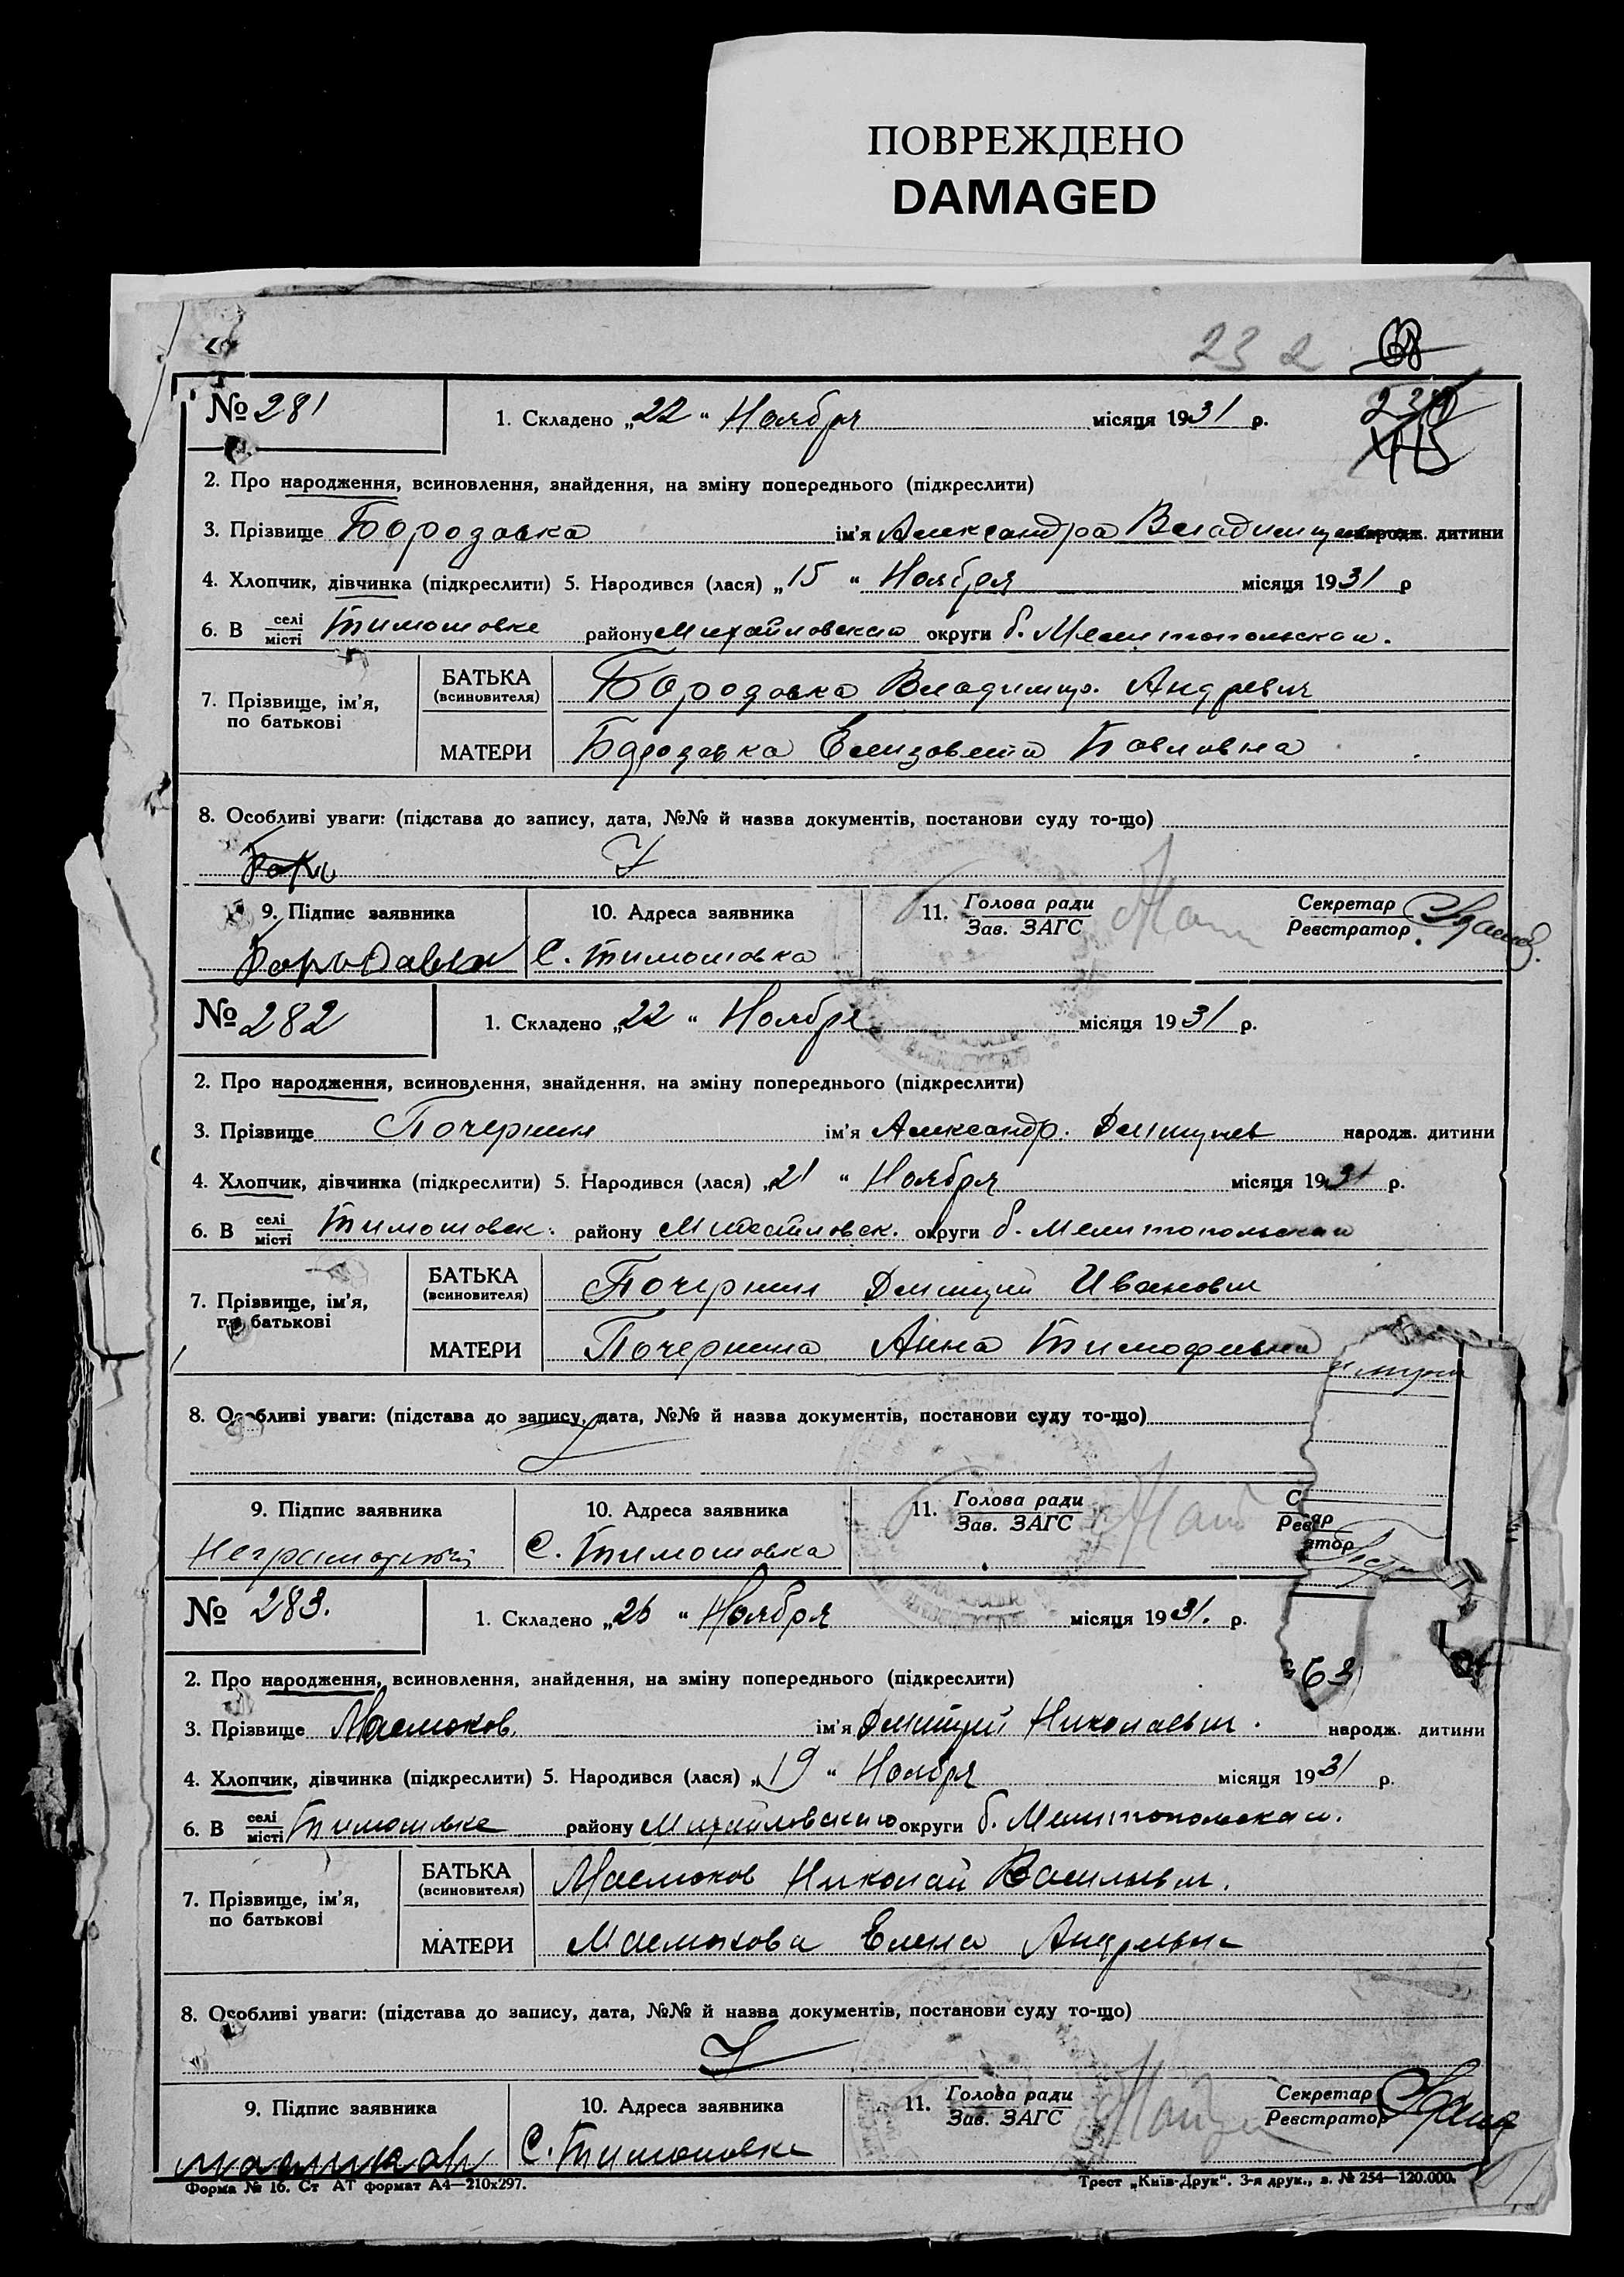 ПОВРЕЖДЕНО
DAMAGED
232 68
№ 281 1. Складено „22“ Ноября місяця 1931 р.
2. Про народження, всиновлення, знайдення, на зміну попереднього (підкреслити)
3. Прізвище Бородавка ім'я Александра народж. дитини
4. Хлопчик, дівчинка (підкреслити) 5. Народився (лася) „15“ Ноября місяця 1931 р
6. В селі місті Тимошовке району Михайловского округи б. Мелитопольской.
7. Прізвище, ім'я, по батькові
БАТЬКА (всиновителя) Бородавка Владимир. Андреевич
МАТЕРИ Бородавка Елизавета Павловна
8. Особливі уваги: (підстава до запису, дата, №№ й назва документів, постанови суду то-що)
9. Підпис заявника 10. Адреса заявника 11. Голова ради Зав. ЗАГС Секретар Реєстратор
Бородавка С. Тимошовка
№ 282 1. Складено „22“ Ноября місяця 1931 р.
2. Про народження, всиновлення, знайдення, на зміну попереднього (підкреслити)
3. Прізвище ім'я Александр. народж. дитини
4. Хлопчик, дівчинка (підкреслити) 5. Народився (лася) „21“ Ноября місяця 1931 р.
6. В селі місті Тимошовск. району округи б. Мелитопольской
7. Прізвище, ім'я, по батькові
БАТЬКА (всиновителя) Дмитрий Иванович
МАТЕРИ Анна Тимофеевна
8. Особливі уваги: (підстава до запису, дата, №№ й назва документів, постанови суду то-що)
9. Підпис заявника 10. Адреса заявника 11. Голова ради Зав. ЗАГС
Неграмотный С. Тимошовка
№ 283. 1. Складено „26“ Ноября місяця 1931. р.
63
2. Про народження, всиновлення, знайдення, на зміну попереднього (підкреслити)
3. Прізвище Маслюков. ім'я Дмитрий Николаевич. народж. дитини
4. Хлопчик, дівчинка (підкреслити) 5. Народився (лася) „19“ Ноября місяця 1931 р.
6. В селі місті Тимошовке району Михайловского округи б. Мелитопольской.
7. Прізвище, ім'я, по батькові
БАТЬКА (всиновителя) Маслюков Николай Васильевич.
МАТЕРИ Маслюкова Елена Андреевна
8. Особливі уваги: (підстава до запису, дата, №№ й назва документів, постанови суду то-що)
9. Підпис заявника 10. Адреса заявника 11. Голова ради Зав. ЗАГС Секретар Реєстратор
С. Тимошовка
Форма № 16. Ст АТ формат А4—210х297. Трест „Київ-Друк“. 3-я друк., з. № 254—120.000.